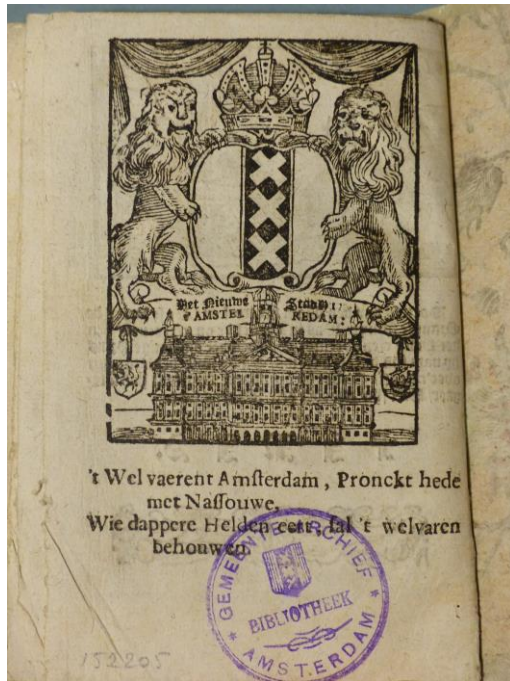 Het Nieuwe Stadh
t' AMSTEL REDAM:
't Wel vaerent Amsterdam, Pronckt hede
met Nassouwe,
Wie dappere Helden eert, sal 't welvaren
behouwen.
GEMEENTE ARCHIEF
BIBLIOTHEEK
* AMSTERDAM *
152205